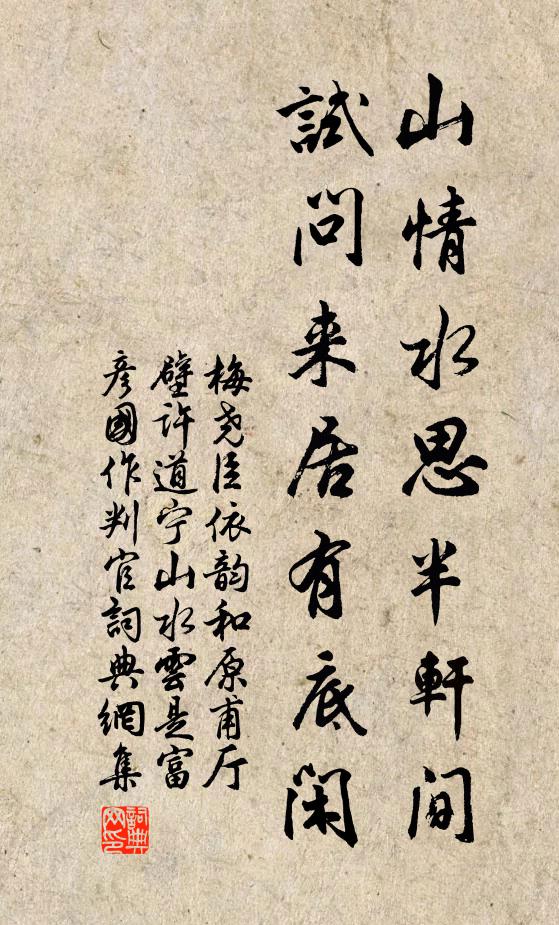 山情水思半軒间
試问来居有底闲
梅尧臣依韵和原甫厅
壁许道宁山水雲是富
彦國作判官詞典網集
詞典
网印